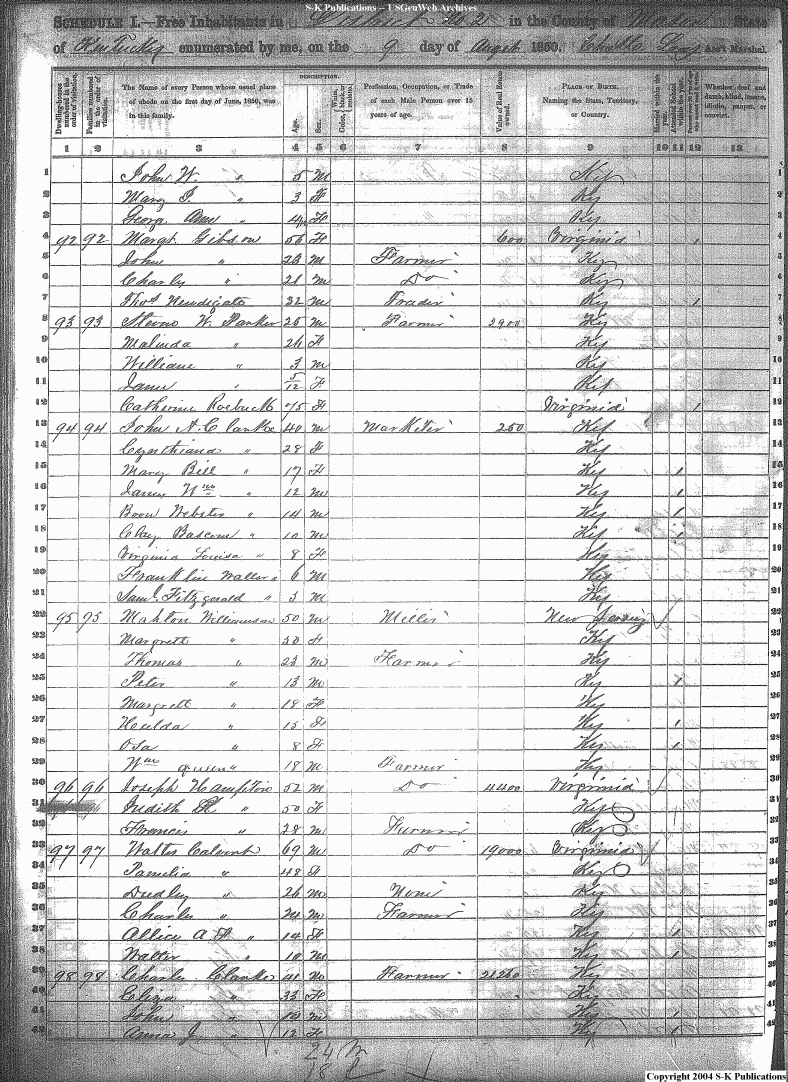 S-K Publications – USGenWeb Archives
SCHEDULE I.—Free Inhabitants in District No. 2 in the County of Mason State
of Kentucky enumerated by me, on the 9 day of August 1850. Ass't Marshal.
Dwelling-houses numbered in the order of visitation.
Families numbered in the order of visitation.
The Name of every Person whose usual place of abode on the first day of June, 1850, was in this family.
DESCRIPTION.
Age.
Sex.
Color, White, black, or mulatto.
Profession, Occupation, or Trade of each Male Person over 15 years of age.
Value of Real Estate owned.
PLACE OF BIRTH. Naming the State, Territory, or Country.
Married within the year.
Attended School within the year.
Whether deaf and dumb, blind, insane, idiotic, pauper, or convict.
1 2 3 4 5 6 7 8 9 10 11 12 13
1 John W. " 5 M Ky 1
2 Mary J. " 3 F Ky 2
3 Georg Ann " F Ky 3
4 92 92 Margt. Gibson 56 F 600 Virginia 1 4
5 John " 23 M Farmer Ky 5
6 Charly " 21 M Do Ky 6
7 Thos Newdigate 32 M Trader Ky 1 7
8 93 93 W. Parker 25 M Farmer 2900 Ky 8
9 Malinda " 26 F Ky 9
10 William " 3 M Ky 10
11 Jane " 5/12 F Ky 11
12 Catherine Roebuck 75 F Virginia 1 12
13 94 94 John N. Clarke 40 M Marketer 250 Ky 13
14 Cynthiana " 28 F Ky 14
15 Mary Bell " 17 F Ky 1 15
16 James Wm " 12 M Ky 1 16
17 Boon Webster " 14 M Ky 1 17
18 Clay Bascom " 10 M Ky 1 18
19 Virginia Louisa " 8 F Ky 19
20 Franklin Waller " 6 M Ky 20
21 Saml. Fitzgerald " 3 M Ky 21
22 95 95 Mahlon Williamson 50 M Miller New Jersey 22
23 Margrett " 50 F Ky 23
24 Thomas " 23 M Farmer Ky 24
25 Peter " 13 M Ky 1 25
26 Margrett " 18 F Ky 26
27 Hulda " 15 F Ky 1 27
28 Osa " 8 F Ky 1 28
29 Wm queen " 18 M Farmer Ky 29
30 96 96 Joseph Hampton 52 M Do 4400 Virginia 30
31 Judith " 50 F Ky 31
32 Francis " 28 M Farmer Ky 32
33 97 97 Walter Calvert 69 M Do 19000 Virginia 33
34 Pamelia " 48 F Ky 34
35 Dudley " 26 M None Ky 35
36 Charles " 21 M Farmer Ky 36
37 Allice A F " 14 F Ky 1 37
38 Walter " 10 M Ky 1 38
39 98 98 Charles Clarke 41 M Farmer 21260 Ky 39
40 Eliza " 33 F Ky 40
41 John " 14 M Ky 1 41
42 Anna J. " 12 F Ky 1 42
24 M
18 F
Copyright 2004 S-K Publications